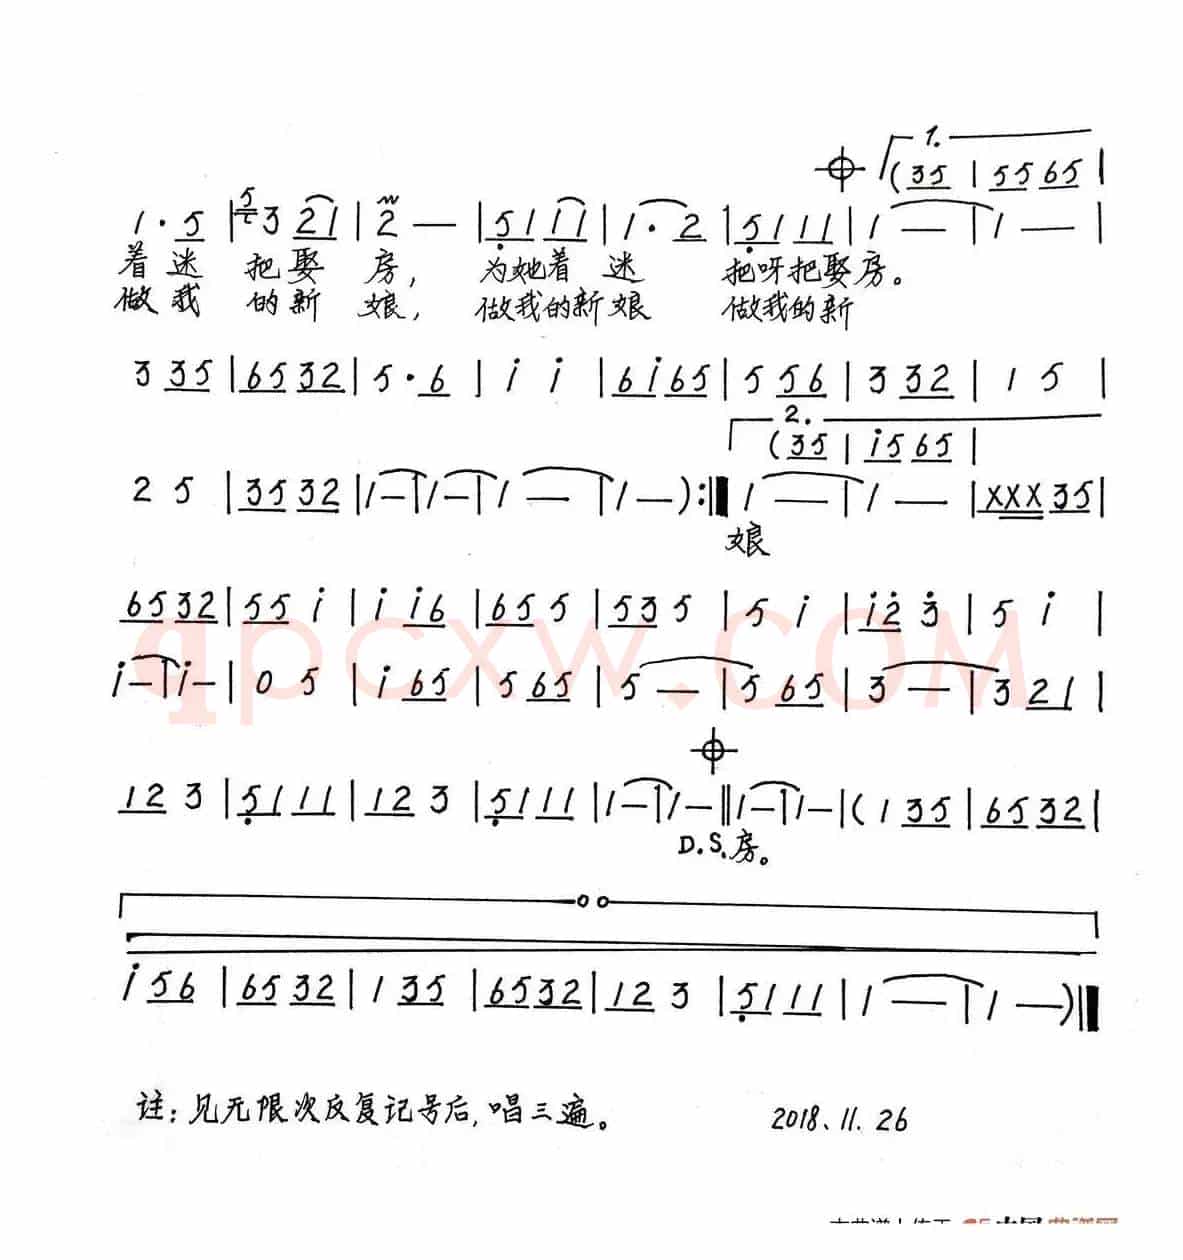 1.
(35 | 55 65 |
1·5 | 5 3 21 | 2 — | 51 11 | 1·2 | 51 11 | 1 — | 1 — |
着迷 把娶 房， 为她着 迷 把呀把娶房。
做我 的新 娘， 做我的新娘 做我的新
3 35 | 65 32 | 5·6 | i i | 6i 65 | 5 56 | 3 32 | 1 5 |
2.
(35 | i5 65 |
2 5 | 35 32 | 1 — | 1 — | 1 — | 1 — ) :‖ 1 — | 1 — | XXX 35 |
娘
65 32 | 55 i | i i6 | 65 5 | 53 5 | 5 i | i2 3 | 5 i |
i — | i — | 0 5 | i 65 | 5 65 | 5 — | 5 65 | 3 — | 3 21 |
12 3 | 51 11 | 12 3 | 51 11 | 1 — | 1 — ‖ 1 — | 1 — | ( 1 35 | 65 32 |
D.S. 房。
i 56 | 65 32 | 1 35 | 65 32 | 12 3 | 51 11 | 1 — | 1 — ) ‖
注：见无限次反复记号后，唱三遍。 2018、11. 26
qpcxw.com